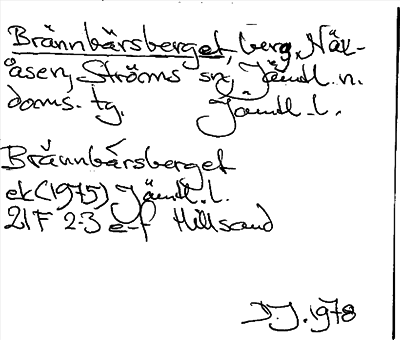 Brännbärsberget, berg, Näk-
åsen, Ströms sn, Jämtl. n.
doms. tg. Jämtl. l.
Brännbärsberget
ek (1975) Jämtl. l.
21F 2-3 e-f Hillsand
D.J. 1978